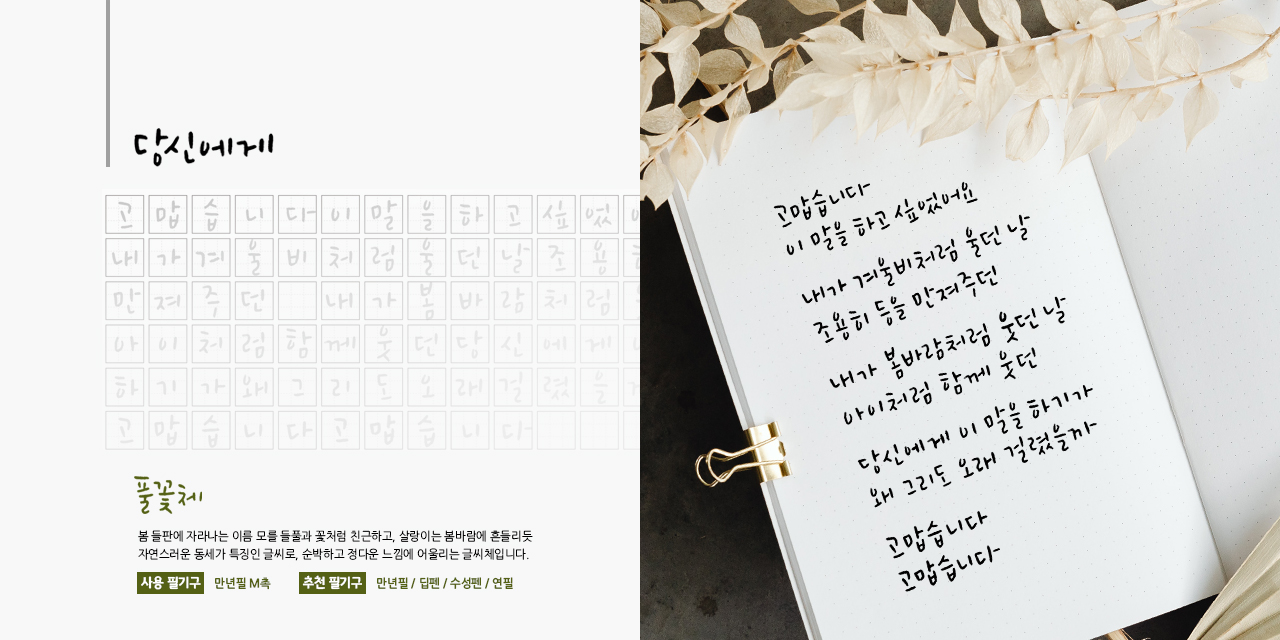 당신에게
고맙습니다이말을하고싶었
내가겨울비처럼울던날조용
만져주던 내가봄바람처럼
아이처럼함께웃던당신에게
하기가왜그리도오래걸렸을
고맙습니다고맙습니다
풀꽃체
봄 들판에 자라나는 이름 모를 들풀과 꽃처럼 친근하고, 살랑이는 봄바람에 흔들리듯
자연스러운 동세가 특징인 글씨로, 순박하고 정다운 느낌에 어울리는 글씨체입니다.
사용 필기구 만년필 M촉 추천 필기구 만년필 / 딥펜 / 수성펜 / 연필
고맙습니다
이 말을 하고 싶었어요
내가 겨울비처럼 울던 날
조용히 등을 만져주던
내가 봄바람처럼 웃던 날
아이처럼 함께 웃던
당신에게 이 말을 하기가
왜 그리도 오래 걸렸을까
고맙습니다
고맙습니다